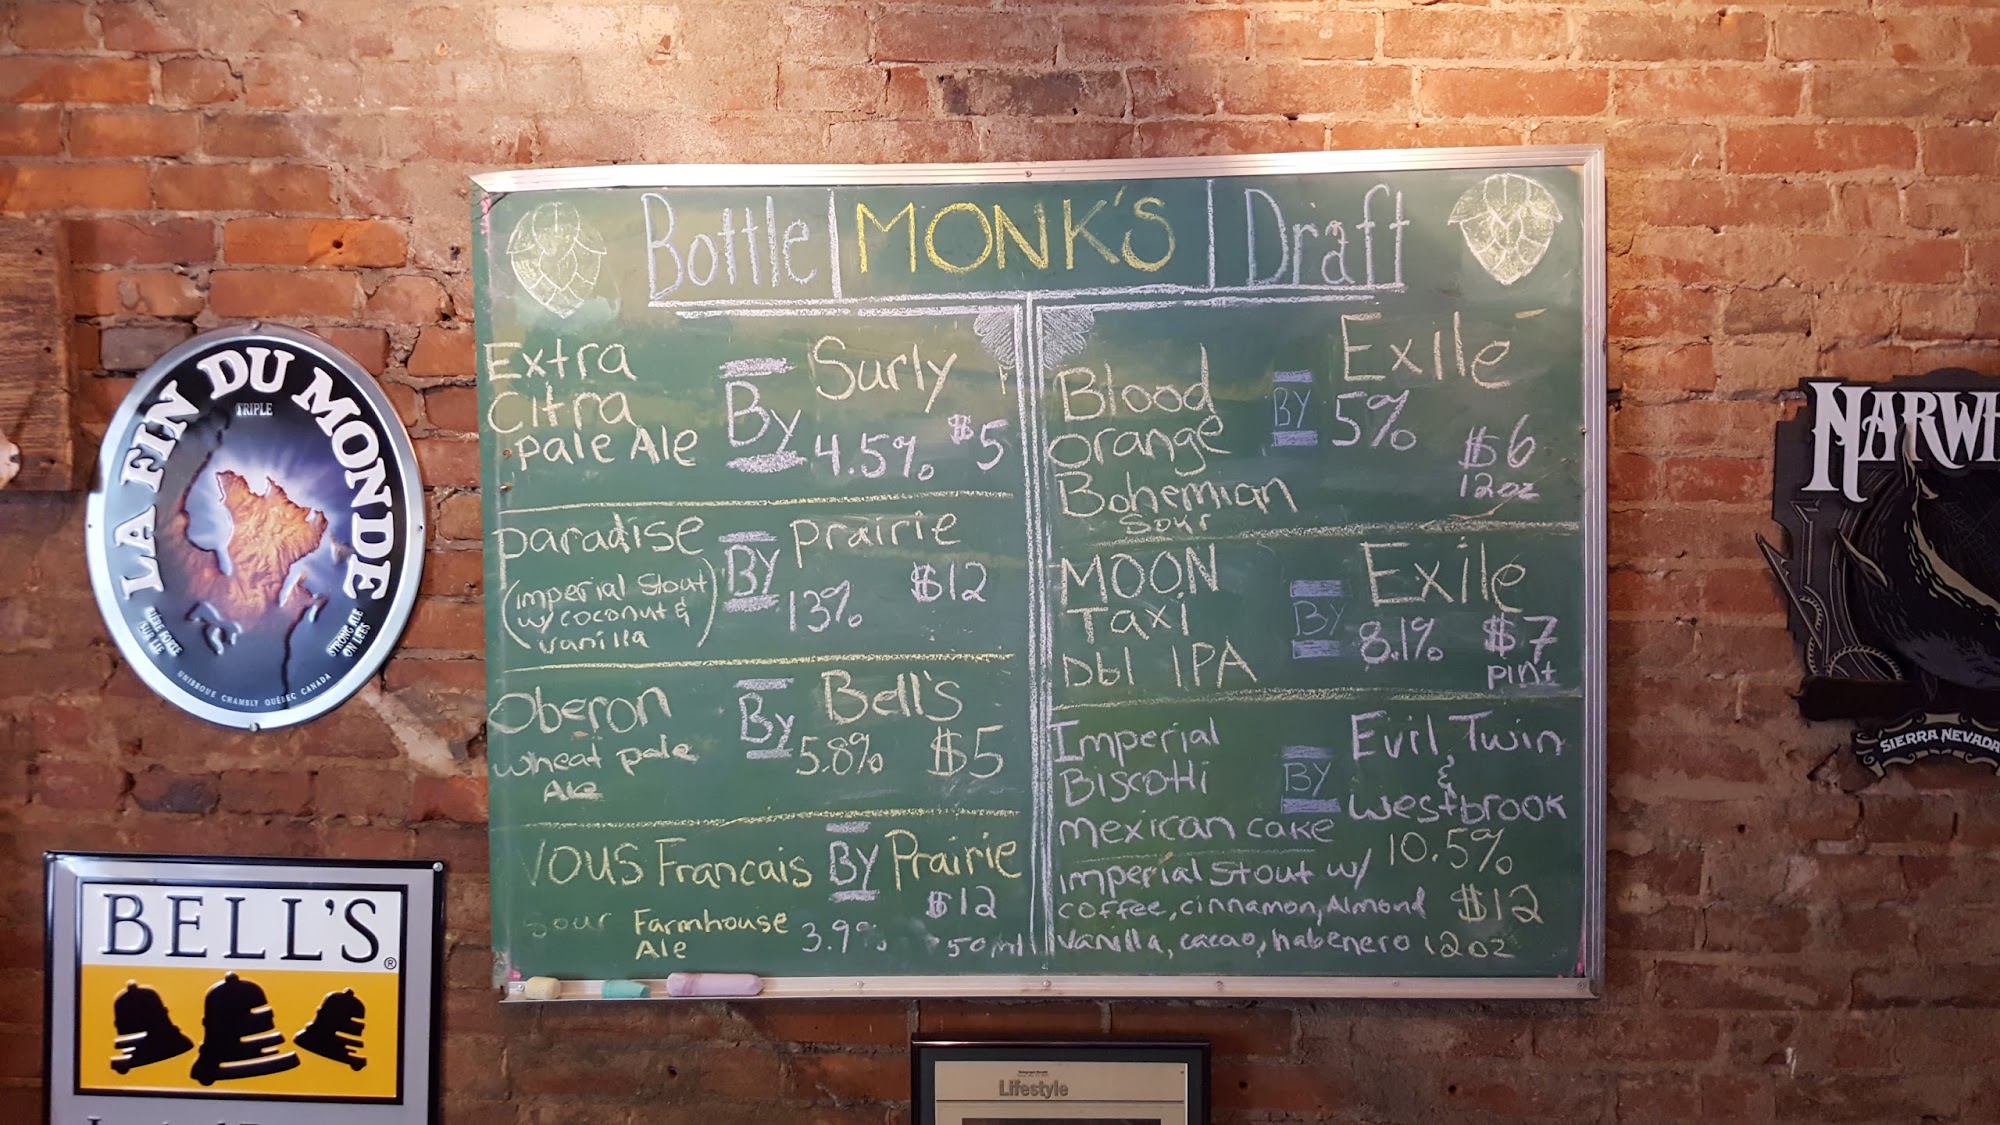 Bottle | MONK'S | Draft
Extra
Citra
Pale Ale
By
Surly
4.5% $5
Paradise
(imperial stout
w/ coconut &
vanilla)
By
Prairie
13% $12
Oberon
wheat pale
Ale
By
Bell's
5.8% $5
VOUS Francais By Prairie
$12
Sour Farmhouse
Ale
3.9%
50ml
Blood
Orange
Bohemian
Sour
BY
Exile
5%
$6
12oz
MOON
Taxi
Dbl IPA
BY
Exile
8.1% $7
pint
Imperial
Biscotti
mexican cake
BY
Evil Twin
&
Westbrook
10.5%
imperial stout w/
coffee, cinnamon, Almond
vanilla, cacao, habenero
$12
12oz
LA FIN DU MONDE
TRIPLE
BIÈRE FORTE
SUR LIE
STRONG ALE
ON LEES
UNIBROUE CHAMBLY QUÉBEC CANADA
BELL'S®
NARWH
SIERRA NEVADA
Lifestyle